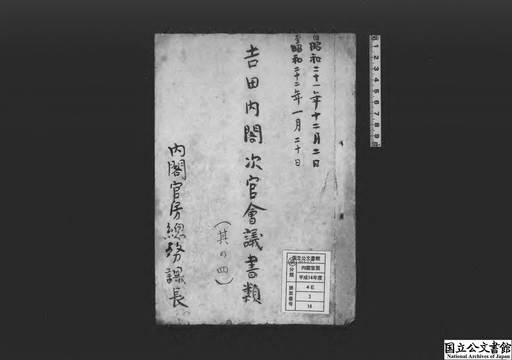 自昭和二十一年十二月二日
至昭和二十二年一月二十日
吉田内閣次官會議書類
(其の四)
内閣官房總務課長
国立公文書館
分類
内閣官房
平成14年度
4E
排架番号
2
14
1 2 3 4 5 6 7 8 9
国立公文書館
National Archives of Japan